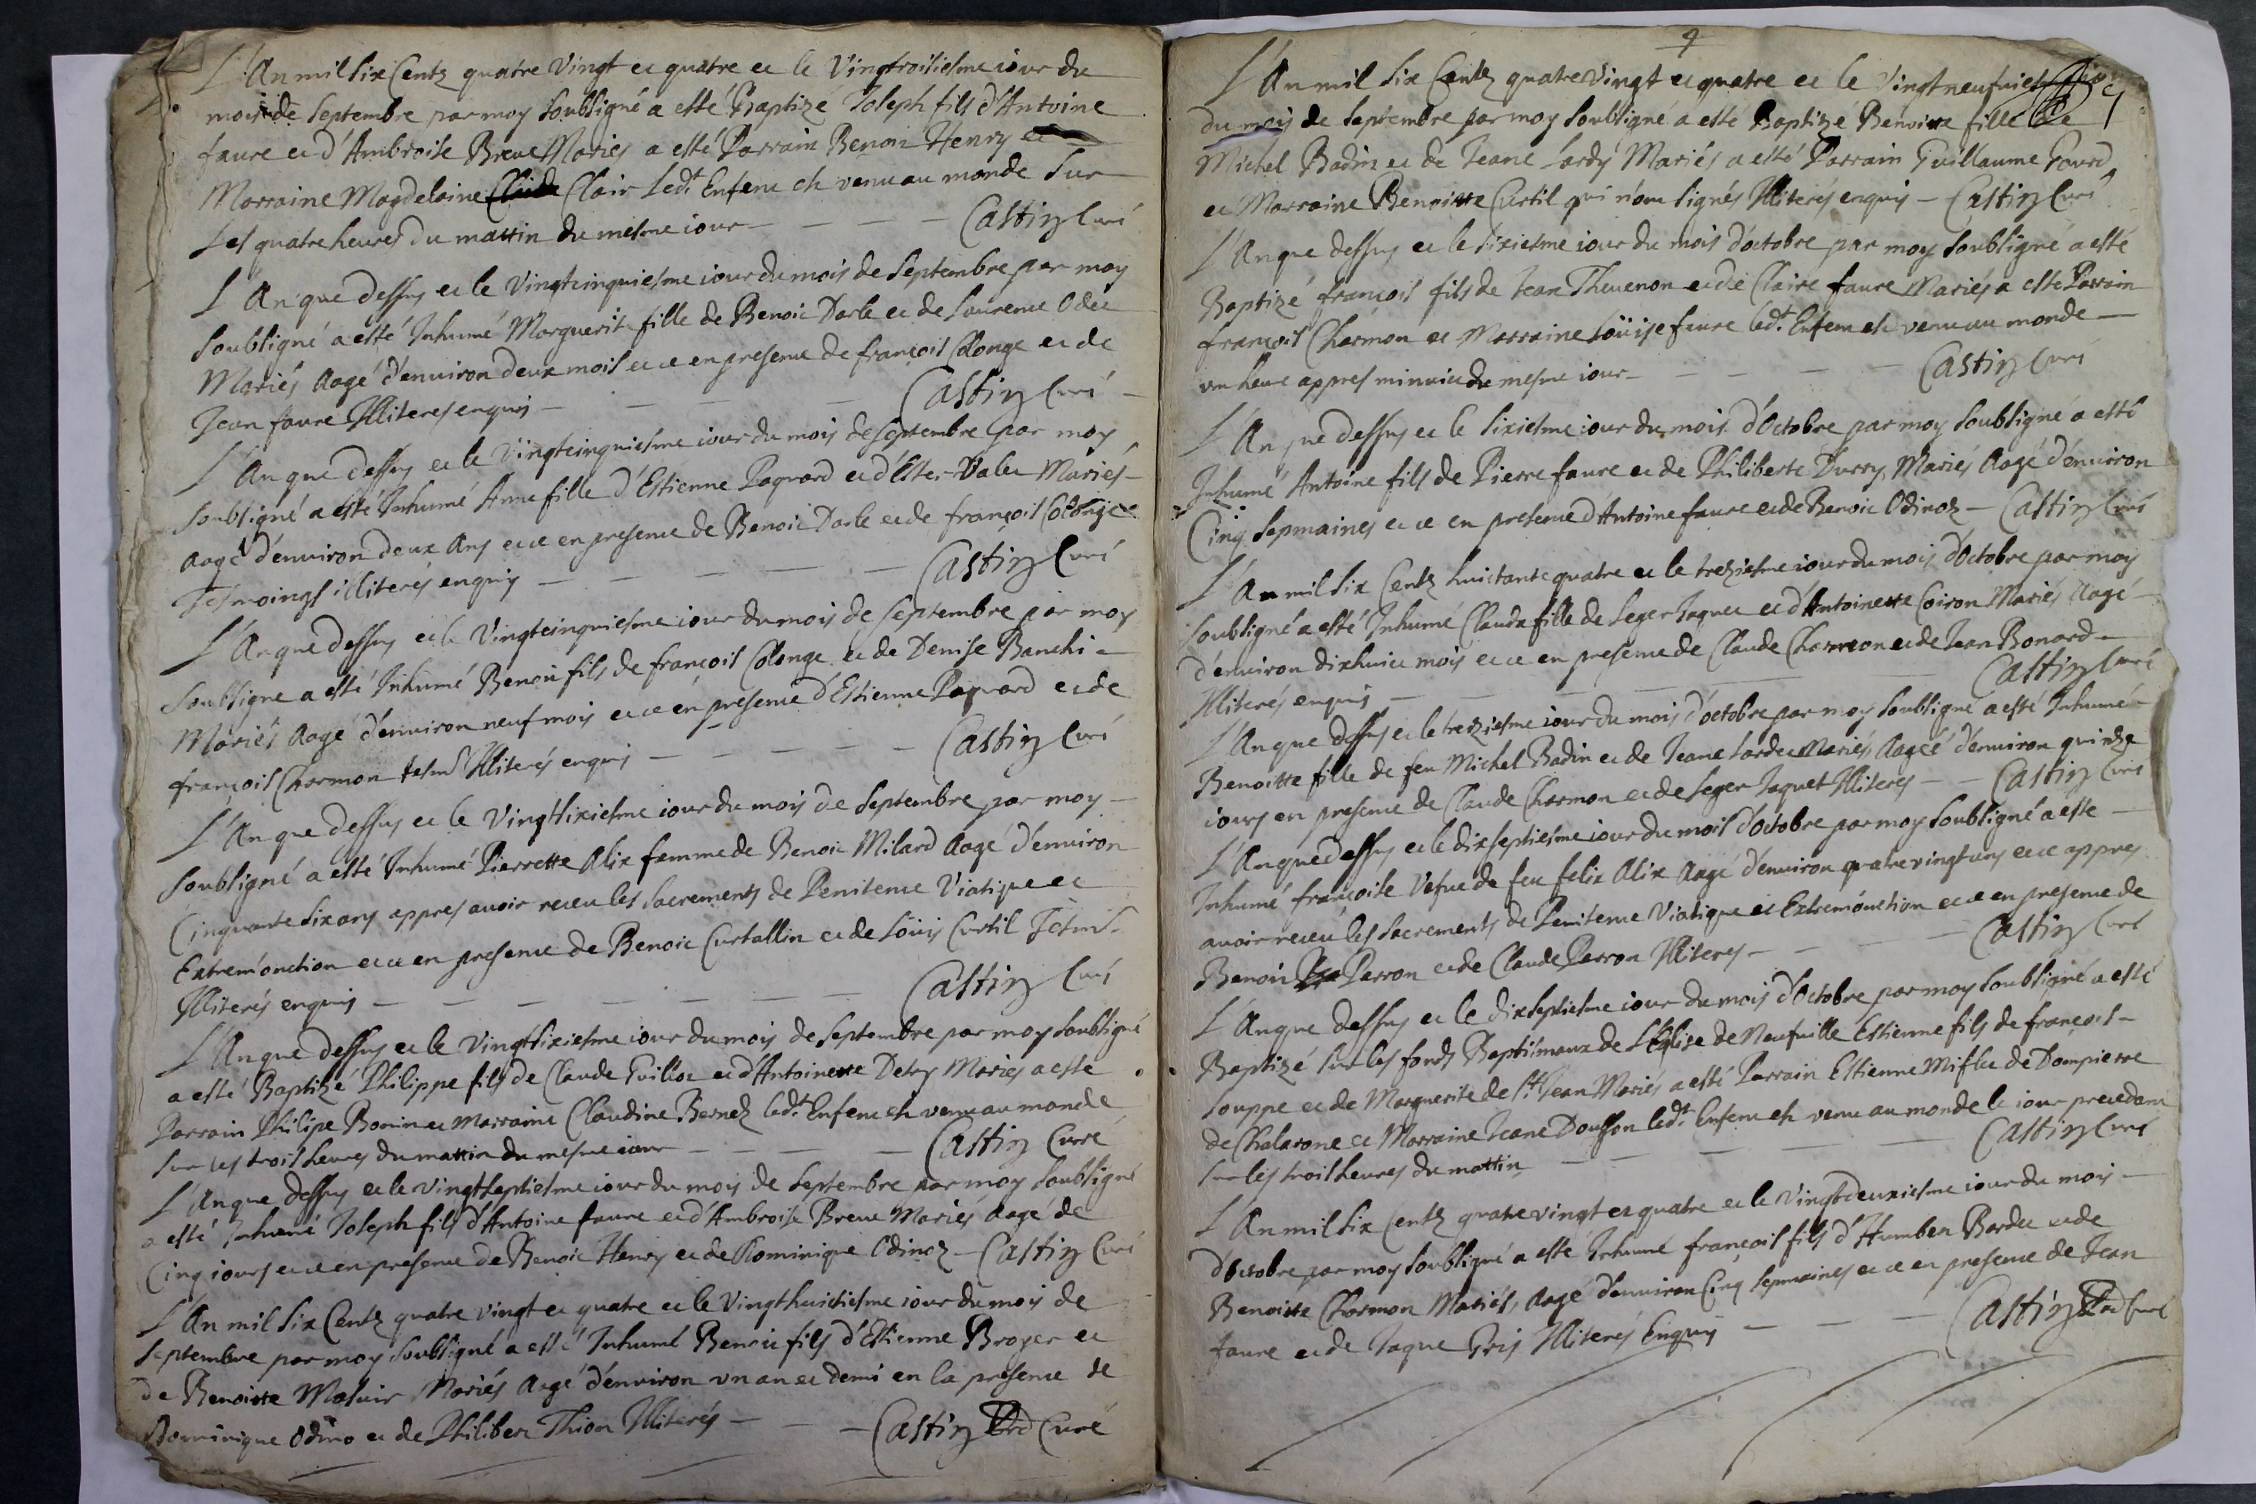 L'An mil six Centz quatre Vingt et quatre et le Vingtroisiesme iour du
mois de Septembre par moy soubsigné a esté Baptizé Joseph fils d'Antoine
faure et d'Ambroise Breue Mariés a esté Parrain Benoit Henry et
Marraine Magdelaine Clair Led.t Enfent est venu au monde sur
Les quatre heures du mattin du mesme iour — Castin Curé
L'An que dessus et le Vingtcinquiesme iour du mois de Septembre par moy
soubsigné a esté Inhumé Marguerite fille de Benoit Darle et de Laurence Odet
Mariés Aagé d'enuiron deux mois et ce en presence de françois Colonge et de
Jean faure Illiterés enquis — Castin Curé
L'An que dessus et le Vingtcinquiesme iour du mois de Septembre par moy
soubsigné a esté Inhumé Anne fille d'Estienne Paquard et d'Ester Valet Mariés
Aagé d'enuiron deux Ans et ce en presence de Benoit Darle et de françois Colonge
Tesmoings illiterés enquis — Castin Curé
L'An que dessus et le Vingtcinquiesme iour du mois de Septembre par moy
Soubsigne a esté Inhumé Benoit fils de françois Colonge et de Denise Banchi
Mariés Aagé d'enuiron neuf mois et ce en presence d'Estienne Paquard et de
françois Charmon tesm.s Illiterés enquis — Castin Curé
L'An que dessus et le Vingtsixiesme iour du mois de Septembre par moy
Soubsigné a esté Inhumé Pierrette Alix femme de Benoit Milard Aagé d'enuiron
Cinquante six ans appres auoir receu les Sacrements de Penitence Viatique et
Extrem'onction et ce en presence de Benoit Curtallin et de Loüis Curtil Tesm.s
Illiterés enquis — Castin Curé
L'An que dessus et le Vingtsixiesme iour du mois de Septembre par moy soubsigné
a esté Baptizé Philippe fils de Claude Guillot et d'Antoinette Detry Mariés a esté
Parrain Philipe Bonin et Marraine Claudine Bernez led.t Enfent est venu au monde
sur les trois heures du mattin du mesme iour — Castin Curré
L'An que dessus et le Vingtseptiesme iour du mois de Septembre par moy soubsigné
a esté Inhumé Joseph fils d'Antoine faure et d'Ambroise Breue Mariés Aagé de
Cinq iours et ce en presence de Benoit Henry et de Dominique Odinoz — Castin Curé
L'An mil six Centz quatre vingt et quatre et le Vingthuictiesme iour du mois de
Septembre par moy soubsigné a esté Inhumé Benoit fils d'Estienne Broyer et
de Benoitte Maluir Mariés Aagé d'enuiron vn an et demi en la presence de
Dominique Odino et de Philibert Thion Illiterés — Castin Curé
L'An mil six Centz quatre Vingt et quatre et le Vingtneufuiesme
du mois de Septembre par moy soubsigné a esté Baptizé Benoitte fille de
Michel Badin et de Jeane Lardy Mariés a esté Parrain Guillaume Gourd
et Marraine Benoitte Curtil qui n'ont signés Illiterés enquis — Castin Curé
L'An que dessus et le sixiesme iour du mois d'octobre par moy soubsigné a esté
Baptizé françois fils de Jean Theuenon et de Claire faure Mariés a este Parrain
françois Charmon et Marraine Loüise faure led.t Enfent est venu au monde
vne heure appres minuict du mesme iour — Castin Curé
L'An que dessus et le sixiesme iour du mois d'Octobre par moy Soubsigné a esté
Inhumé Antoine fils de Pierre faure et de Philiberte Durry Mariés Aagé d'enuiron
Cinq Sepmaines et ce en presence d'Antoine faure et de Benoit Odinoz — Castin Curé
L'An mil six Centz huictante quatre et le treziesme iour du mois d'Octobre par moy
soubsigné a esté Inhumé Clauda fille de Leger Jaquet et d'Antoinette Coiron Mariés Aagé
d'enuiron dixhuict mois et ce en presence de Claude Charmon et de Jean Bonard
Illiterés enquis — Castin Curé
L'An que dessus et le treziesme iour du mois d'octobre par moy soubsigné a esté Inhumé
Benoitte fille de feu Michel Badin et de Jeane Lardet Mariés Aageé d'enuiron quinze
iours en presence de Claude Charmon et de Leger Jaquet Illiteres — Castin Curé
L'An que dessus et le dixseptiesme iour du mois d'octobre par moy Soubsigné a este
Inhumé françoise Vefue de feu felix Alix Aagé d'enuiron quatre vingt ans et ce appres
auoir receu les sacrements de Penitence Viatique et Extrem'onction et ce en presence de
Benoit Parron et de Claude Parron Illiteres — Castin Curé
L'An que dessus et le dixseptiesme iour du mois d'Octobre par moy Soubsigné a esté
Baptizé sur les fonds Baptismaux de L'Eglise de Neufuille Estienne fils de françois
Souppe et de Marguerite de S.t Jean Mariés a esté Parrain Estienne Miflet de Dompierre
de Chalarone et Marraine Jeane Douffon led.t Enfent est venu au monde le iour precedant
sur les trois heures du mattin — Castin Curé
L'An mil six Centz quatre vingt et quatre et le Vingtdeuxiesme iour du mois
d'Octobre par moy Soubsigné a esté Inhumé françois fils d'Humbert Bordet et de
Benoitte Charmon Mariés, Aagé d'enuiron Cinq Sepmaines et ce en presence de Jean
faure et de Jaque Gris Illiterés Enquis — Castin Curé